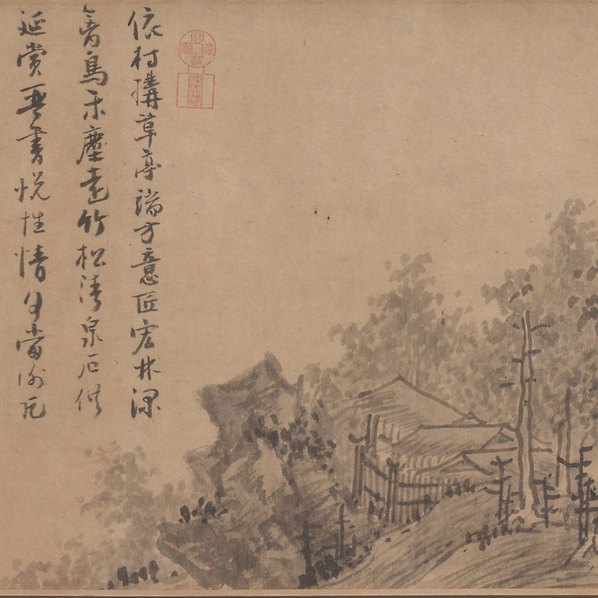 依村構草亭端方意匠宏林深
禽鳥樂塵遠竹松清泉石供
延賞琴書悅性情何當謝凡